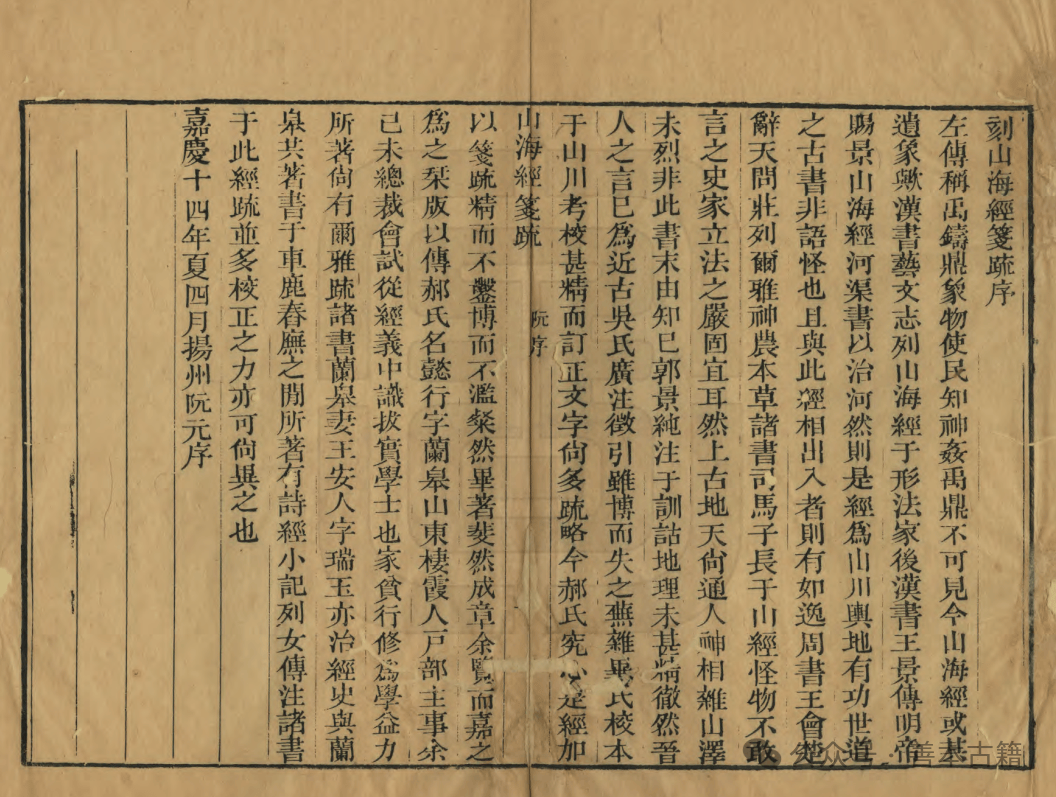 刻山海經箋疏序
左傳稱禹鑄鼎象物使民知神姦禹鼎不可見今山海經或其
遺象歟漢書藝文志列山海經于形法家後漢書王景傳明帝
賜景山海經河渠書以治河然則是經爲山川輿地有功世道
之古書非語怪也且與此經相出入者則有如逸周書王會楚
辭天問莊列爾雅神農本草諸書司馬子長于山經怪物不敢
言之史家立法之嚴固宜耳然上古地天尙通人神相雜山澤
未烈非此書末由知已郭景純注于訓詁地理未甚精徹然晉
人之言已爲近古吳氏廣注徵引雖博而失之蕪雜畢氏校本
于山川考校甚精而訂正文字尙多疏略今郝氏究心是經加
山海經箋疏 阮序
以箋疏精而不鑿博而不濫粲然畢著斐然成章余覽而嘉之
爲之栞版以傳郝氏名懿行字蘭皋山東棲霞人戸部主事余
己未總裁會試從經義中識拔實學士也家貧行修爲學益力
所著尙有爾雅疏諸書蘭皋妻王安人字瑞玉亦治經史與蘭
皋共著書于車鹿春廡之閒所著有詩經小記列女傳注諸書
于此經疏並多校正之力亦可尙異之也
嘉慶十四年夏四月揚州阮元序
公众号·善本古籍